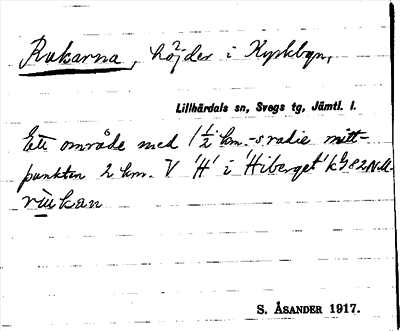 Rukarna, höjder i Kyrkbyn,
Lillhärdals sn, Svegs tg, Jämtl. l.
Ett område med 1 1/2 km.-s radie mitt-
punkten 2 km. V 'H' i 'Hiberget' 82 N.M.
rukan
S. ÅSANDER 1917.